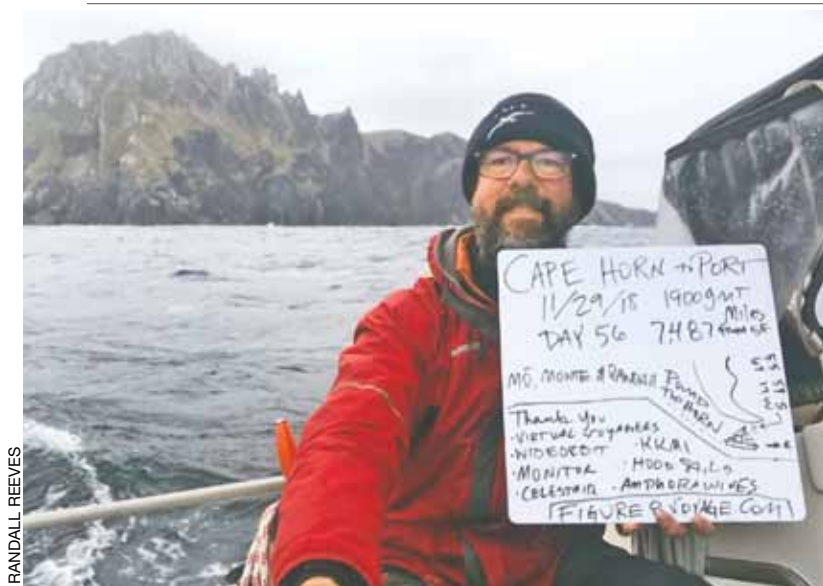 RANDALL REEVES
CAPE HORN to PORT
11/29/18 1900gmT
DAY 56 7487 Miles
MŌ, MONTE & RANDALL ROUND
THE HORN
Thank You
·VIRTUAL VOYAGERS
·WIDEORBIT ·KKMI
·MONITOR ·HOOD SAILS
·CELESTAIR ·AMPHORA WINES
FIGURE8VOYAGE.COM